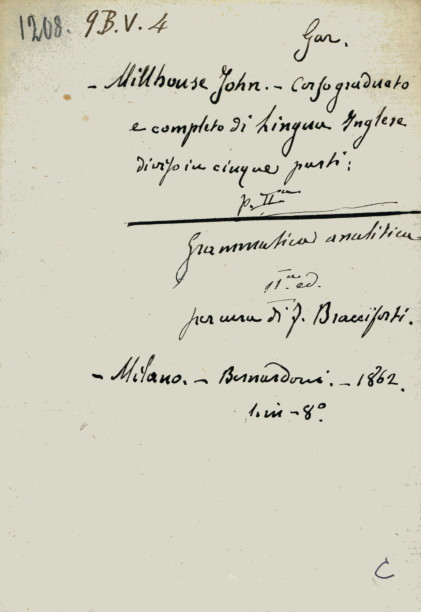 1208. 9B.V.4
Gar.
- Millhouse John. - Corso graduato
e completo di Lingua Inglese
diviso in cinque parti:
p. IIa
Grammatica analitica
11a ed.
per cura di F. Bracciforti.
- Milano. - Bernardoni. - 1862.
1. in - 8°
C